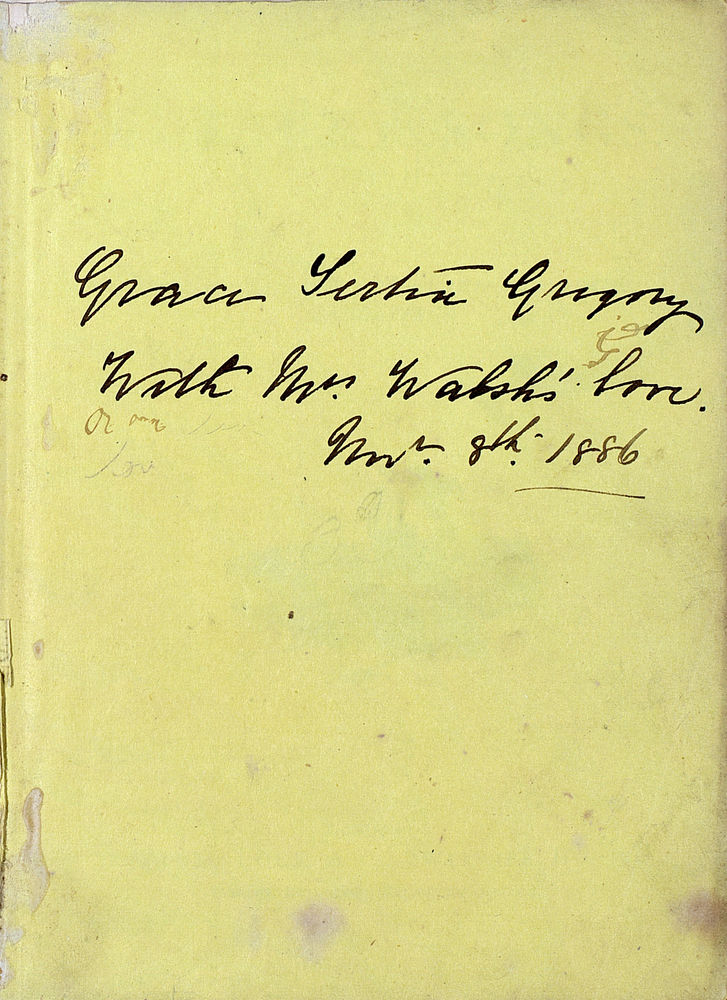 Grace Gregory
With Mrs. Walsh's love.
Novr. 8th. 1886